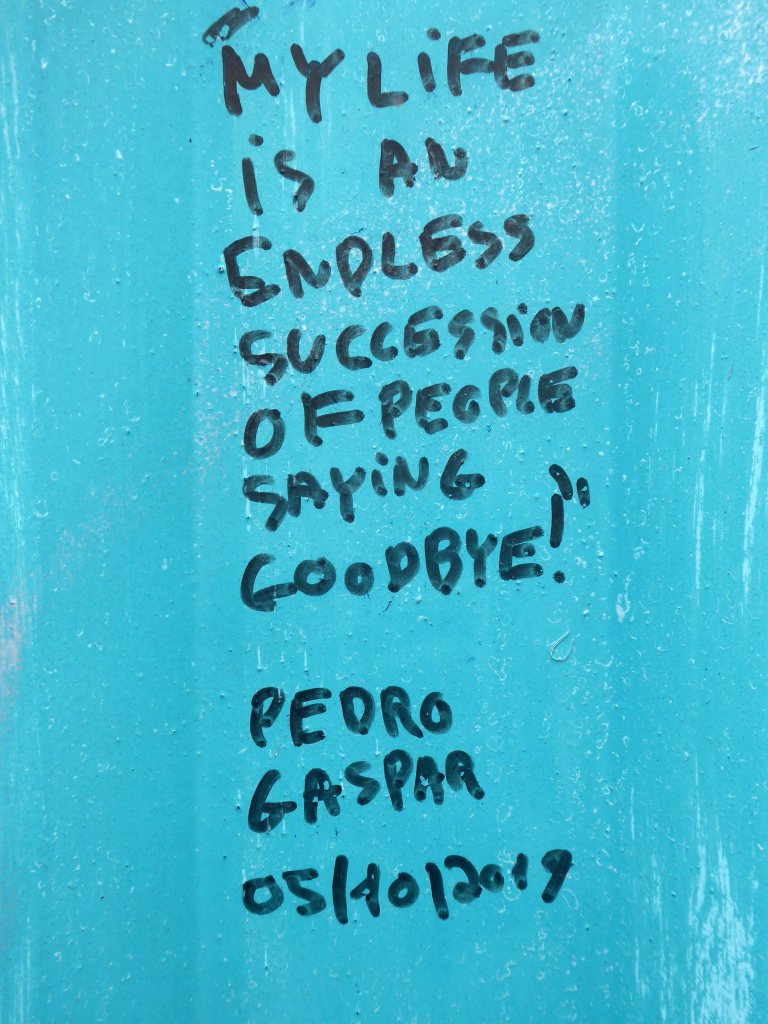 "MY LiFE
iS AN
ENDLESS
SUCCESSiON
OF PEOPLE
SAYiNG
GOODBYE!"
PEDRO
GASPAR
05/10/2019